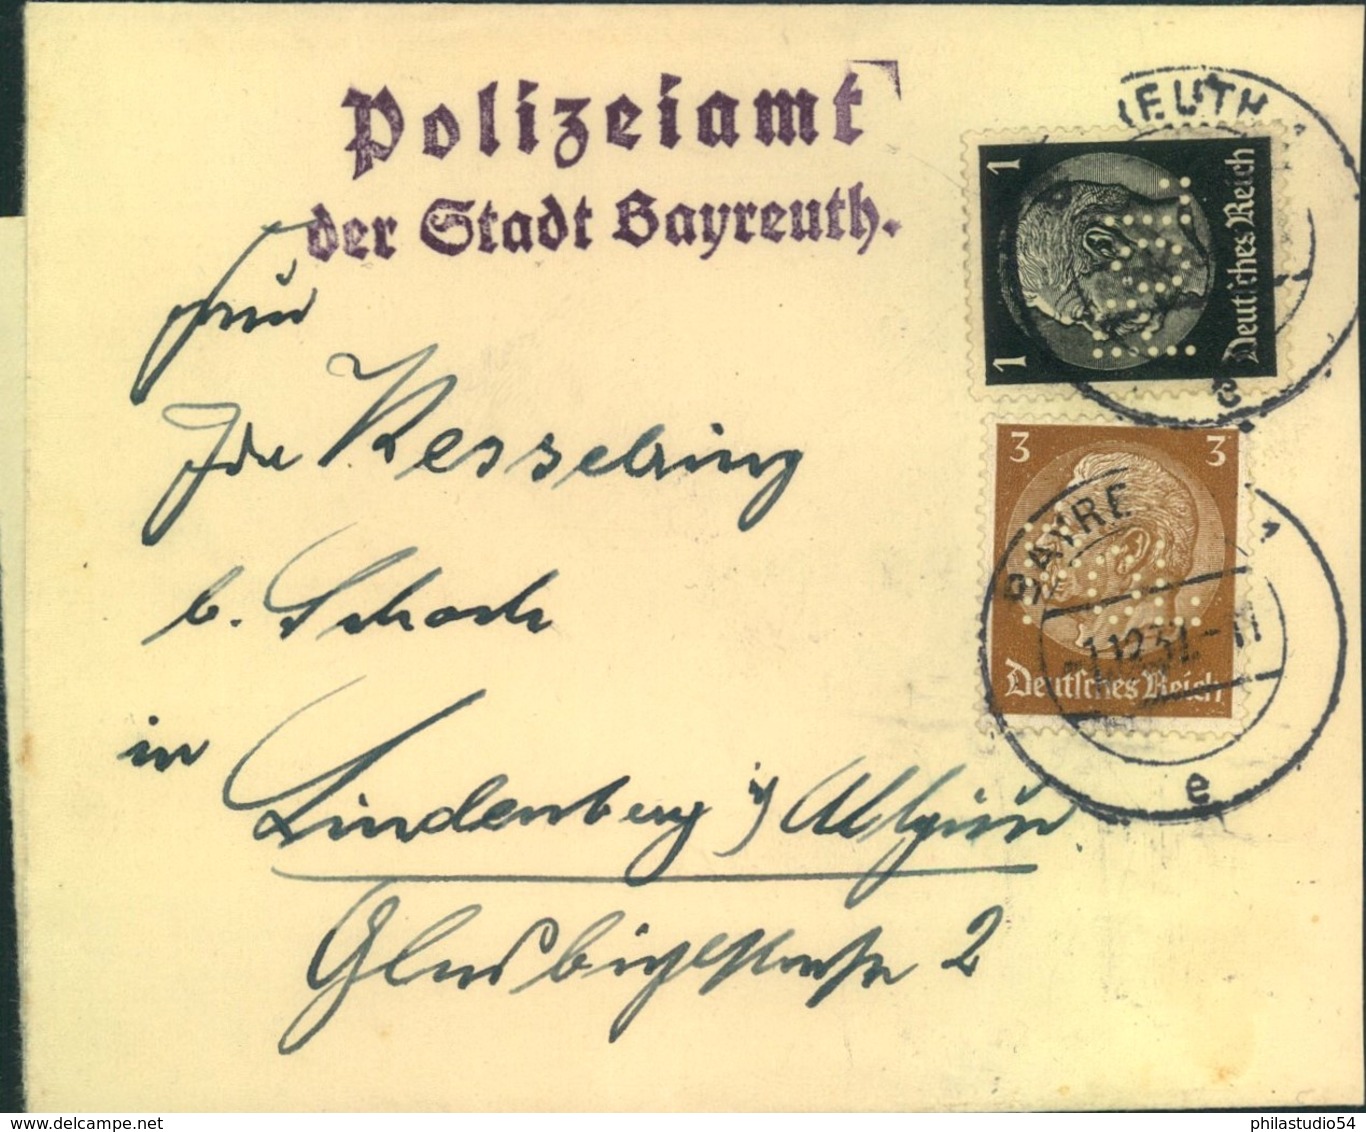 Polizeiamt
der Stadt Bayreuth.
REUTH
1 1
Deutsches Reich
e
Frau
Ida Kesselring
b. Schoch
in
Lindenberg i/ Allgäu
2
3 3
BAYRE
-1.12.37.-11
Deutsches Reich
e
www.delcampe.net
philastudo54